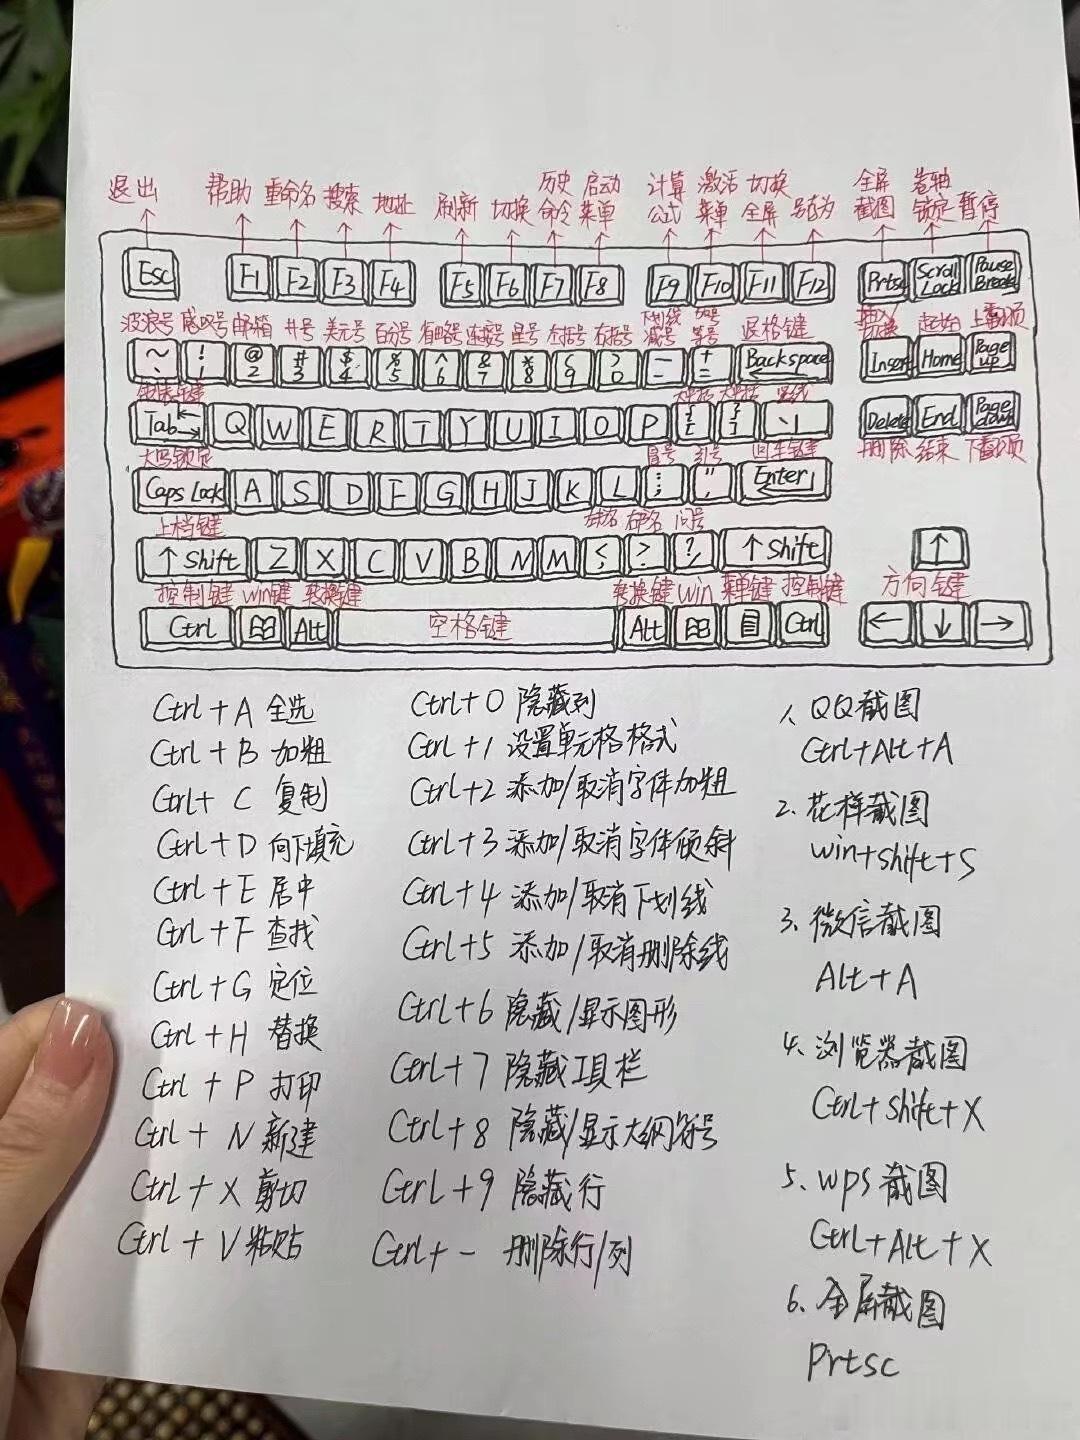 历史 启动 计算 激活 切换 全屏 卷轴
退出 帮助 重命名 搜索 地址 刷新 切换 命令 菜单 公式 菜单 全屏 另存为 截图 锁定 暂停
Esc F1 F2 F3 F4 F5 F6 F7 F8 F9 F10 F11 F12 Prtsc Scroll Lock Pause Break
下划线 加号 插入/
波浪号 感叹号 邮箱 井号 美元号 百分号 省略号 连接号 星号 左括号 右括号 减号 等号 退格键 切换 起始 上翻页
~ ` ! 1 @ 2 # 3 $ 4 % 5 ^ 6 & 7 * 8 ( 9 ) 0 — - + = Backspace Insert Home Page up
大括 大括 竖线
Tab Q W E R T Y U I O P { [ } ] \ | Delete End Page down
大写锁定 冒号 引号 回车键 删除 结束 下翻页
Caps Lock A S D F G H J K L : ; " ' Enter
上档键 右书名 问号
↑ Shift Z X C V B N M < , > . ? / ↑ Shift ↑
控制键 win键 转换键 转换键 win 菜单键 控制键 方向键
Ctrl Alt 空格键 Alt Ctrl ← ↓ →
Ctrl + A 全选
Ctrl + B 加粗
Ctrl + C 复制
Ctrl + D 向下填充
Ctrl + E 居中
Ctrl + F 查找
Ctrl + G 定位
Ctrl + H 替换
Ctrl + P 打印
Ctrl + N 新建
Ctrl + X 剪切
Ctrl + V 粘贴
Ctrl+0 隐藏列
Ctrl+1 设置单元格格式
Ctrl+2 添加/取消字体加粗
Ctrl+3 添加/取消字体倾斜
Ctrl+4 添加/取消下划线
Ctrl+5 添加/取消删除线
Ctrl+6 隐藏/显示图形
Ctrl+7 隐藏工具栏
Ctrl+8 隐藏/显示大纲符号
Ctrl+9 隐藏行
Ctrl+- 删除行/列
1、QQ截图
Ctrl+Alt+A
2、花样截图
win+shift+S
3、微信截图
Alt+A
4、浏览器截图
Ctrl+shift+X
5、wps截图
Ctrl+Alt+X
6、全屏截图
Prtsc